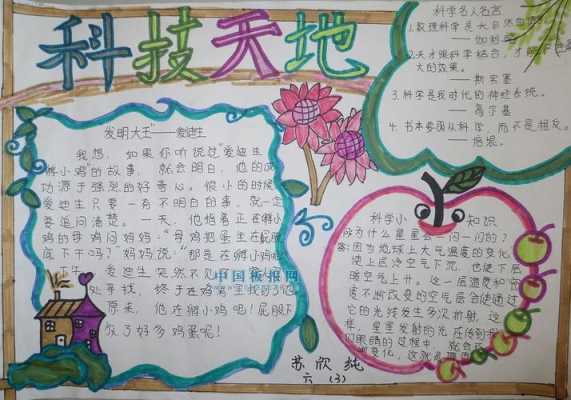 科技天地
发明大王"——爱迪生
我想，如果你听说过"爱迪生
孵小鸡"的故事，就会明白，他的成
功源于强烈的好奇心。很小的时候
爱迪生只要一有不明白的事，就一定
要追问清楚。一天，他指着正在孵小
鸡的母鸡问妈妈："母鸡把蛋坐在屁股
底下干吗？"妈妈说："那是在孵小鸡呢
爱迪生突然不见了
处寻找，终于在鸡窝里找到了他
原来，他在孵小鸡吧！屁股下
放了好多鸡蛋呢！
中国板报网
科学名人名言
1.数理科学是大自然的
——伽利略
2.天才跟科学结合，才能
大的效果。
——斯宾塞
3.科学是我时代的神经系统。
——高尔基
4.书本要围从科学，而不是相反。
——培根。
科学小知识
为什么星星会一闪一闪的？
答:因为地球上大气温度的变化，
使上层冷空气下沉，也使下层
暖空气上升。这一层温度和密
度不断改变的空气层会使通过
它的光线发生多次折射，这
样，星星发射的光在传到
们眼睛的过程中，就会
变化，这就
苏欣纯
六（3）